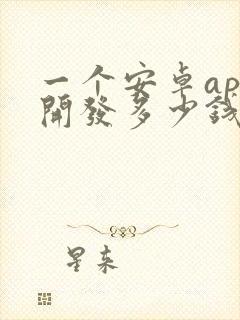 一个安卓ap
開發多少錢
星来